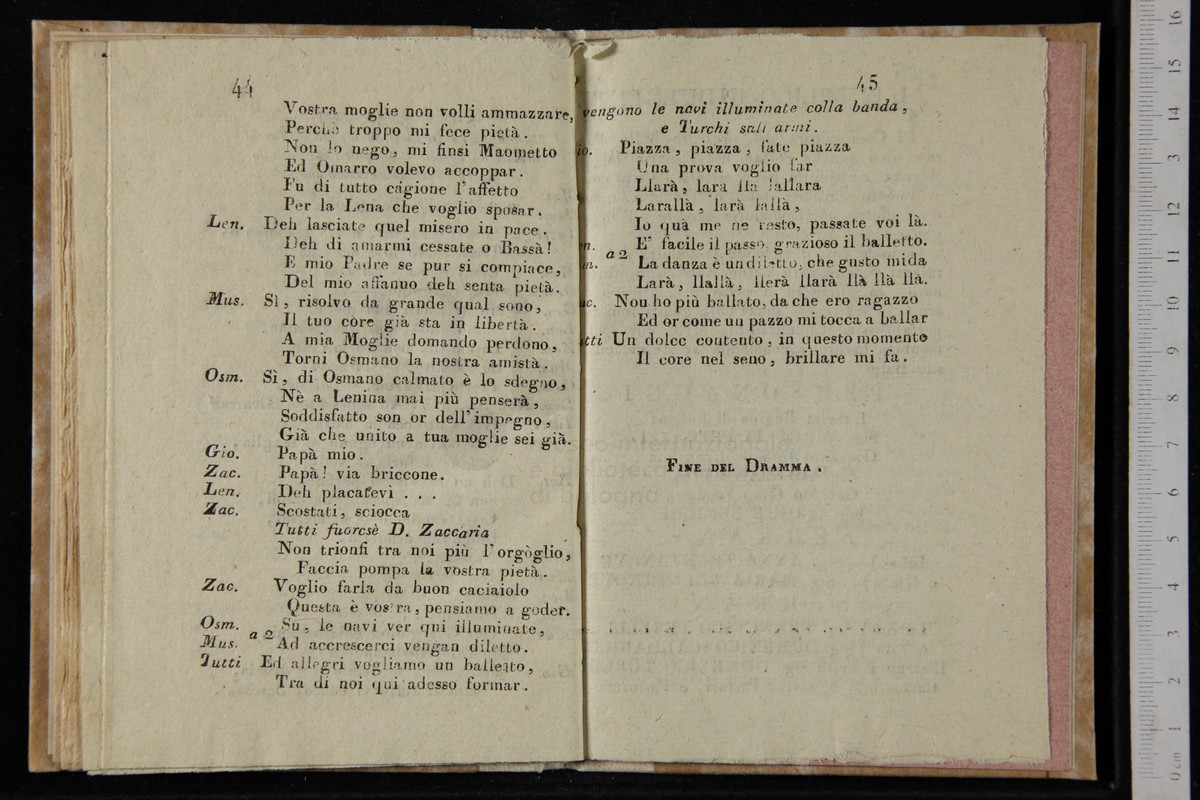 44
Vostra moglie non volli ammazzare,
Perchè troppo mi fece pietà.
Non lo nego, mi finsi Maometto
Ed Omarro volevo accoppar.
Fu di tutto cagione l'affetto
Per la Lena che voglio sposar.
Len. Deh lasciate quel misero in pace.
Deh di amarmi cessate o Bassà!
E mio Padre se pur si compiace,
Del mio affanuo deh senta pietà.
Mus. Sì, risolvo da grande qual sono,
Il tuo core già sta in libertà.
A mia Moglie domando perdono,
Torni Osmano la nostra amistà.
Osm. Sì, di Osmano calmato è lo sdegno,
Nè a Lenina mai più penserà,
Soddisfatto son or dell'impegno,
Già che unito a tua moglie sei già.
Gio. Papà mio.
Zac. Papà! via briccone.
Len. Deh placatevi . . .
Zac. Scostati, sciocca
Tutti fuorcsè D. Zaccaria
Non trionfi tra noi più l'orgòglio,
Faccia pompa la vostra pietà.
Zac. Voglio farla da buon caciaiolo
Questa è vostra, pensiamo a goder.
Osm. Su, le navi ver qui illuminate,
Mus. a 2 Ad accrescerci vengan diletto.
Tutti Ed allegri vogliamo un balletto,
Tra di noi qui adesso formar.
45
vengono le navi illuminate colla banda,
e Turchi sull armi.
io. Piazza, piazza, fate piazza
Una prova voglio far
Llarà, lara lla lallara
Larallà, larà lallà,
Io quà me ne resto, passate voi là.
n. a 2 E' facile il passo, grazioso il balletto.
n. La danza è un diletto, che gusto mida
Larà, llallà, llerà llarà llà llà llà.
ac. Nou ho più ballato, da che ero ragazzo
Ed or come uu pazzo mi tocca a ballar
utti Un dolce coutento, in questo momento
Il core nel seno, brillare mi fa.
FINE DEL DRAMMA.